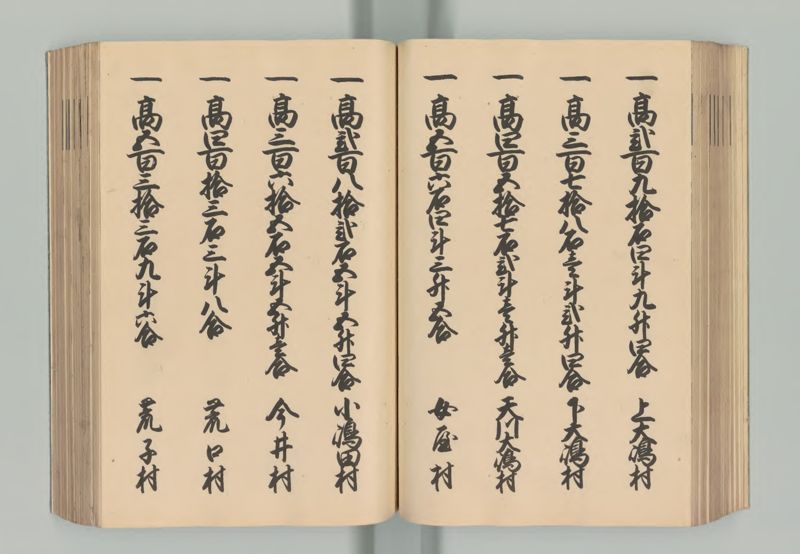 一高弐百九拾石四斗九升四合 上大嶋村
一高三百七拾八石壱斗弐升四合 下大嶋村
一高四百五拾七石弐斗壱升壱合 天川大嶋村
一高五百六石四斗三升五合 女屋村
一高弐百八拾弐石五斗五升四合 小嶋田村
一高三百六拾五石五斗五升壱合 今井村
一高四百拾三石三斗八合 荒口村
一高五百三拾三石九斗六合 荒子村